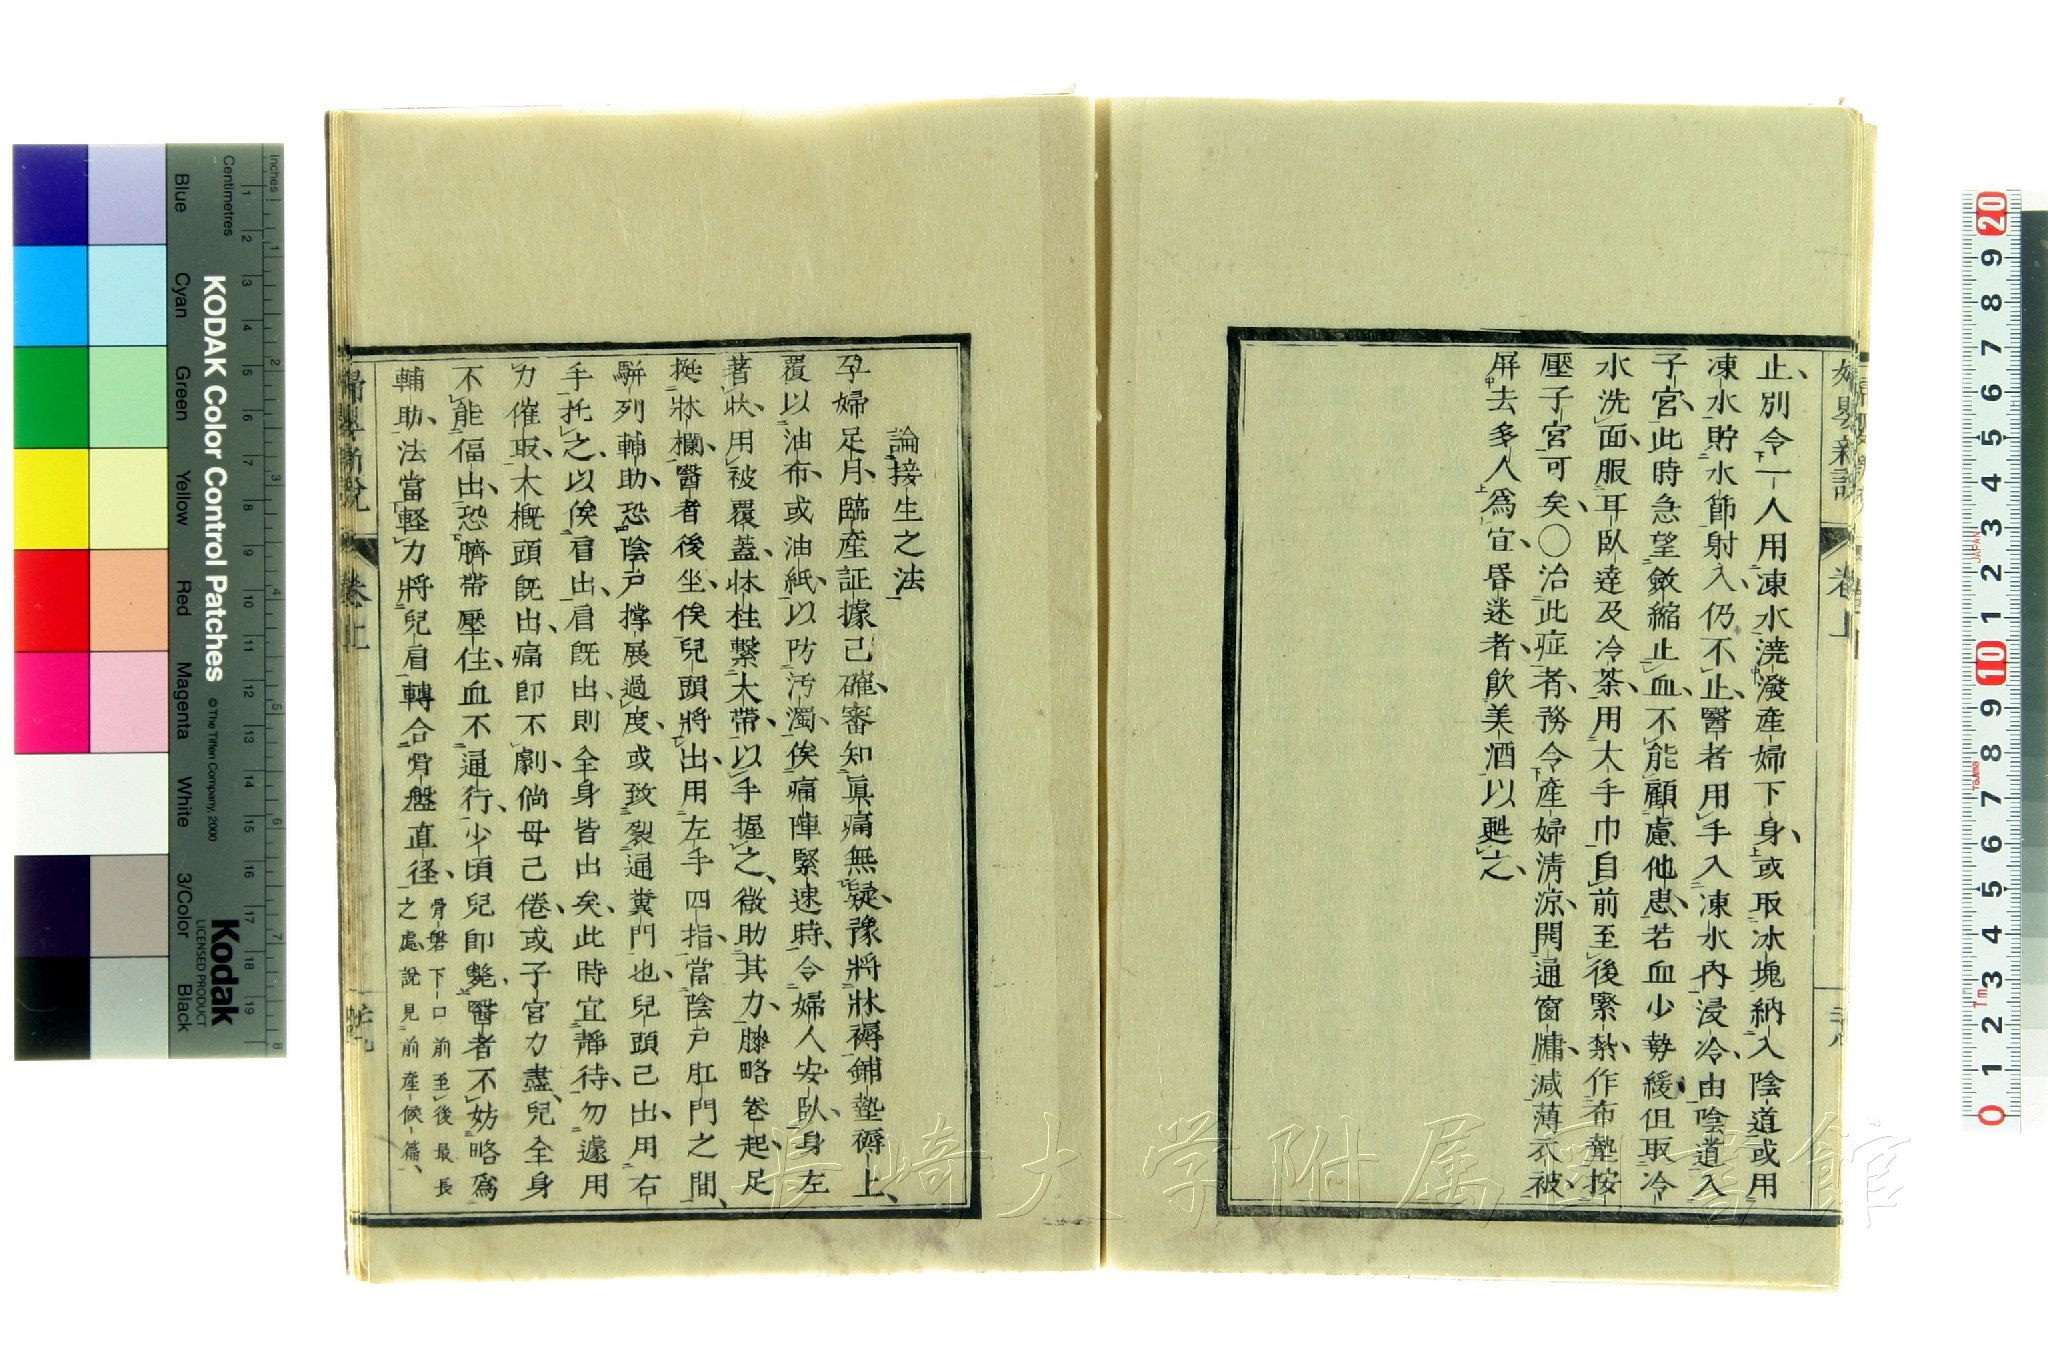 止、別令一人用凍水澆潑產婦下身、或取冰塊納入陰道或用
凍水貯水節射入、仍不止、醫者用手入凍水內浸冷、由陰道入
子宮、此時急望斂縮止血、不能顧慮他患、若血少勢緩、但取冷
水洗面、服耳臥達及冷茶、用大手巾自前至後緊紮、作布墊按
壓子宮可矣、〇治此症者、務令產婦清涼、開通窗牖、減薄衣被
屏去多人爲宜、昏迷者、飲美酒以甦之、
卷上
論接生之法
孕婦足月、臨產証據已確、審知眞痛無疑、豫將牀褥鋪墊、褥上、
覆以油布、或油紙、以防汚濁、俟痛陣緊速時、令婦人安臥、身左
著牀、用被覆蓋、牀柱繫大帶、以手握之、微助其力、膝略卷起、足
挺牀欄、醫者後坐、俟兒頭將出、用左手四指、當陰戶肛門之間、
駢列輔助、恐陰戶撑展過度、或致裂通糞門也、兒頭已出、用右
手托之、以俟肩出、肩既出、則全身皆出矣、此時宜靜待、勿遽用
力催取、大概頭既出、痛卽不劇、倘母已倦、或子宮力盡、兒全身
不能偪出、恐臍帶壓住、血不通行、少頃兒卽斃、醫者不妨略爲
輔助、法當軽力將兒肩轉合骨盤直径、骨盤下口前至後最長
之處、說見前產候篇、
婦嬰新說
卷上
KODAK Color Control Patches
© The Tiffen Company, 2000
Kodak
LICENSED PRODUCT
Inches
Centimetres
Blue
Cyan
Green
Yellow
Red
Magenta
White
3/Color
Black
長崎大学附属図書館